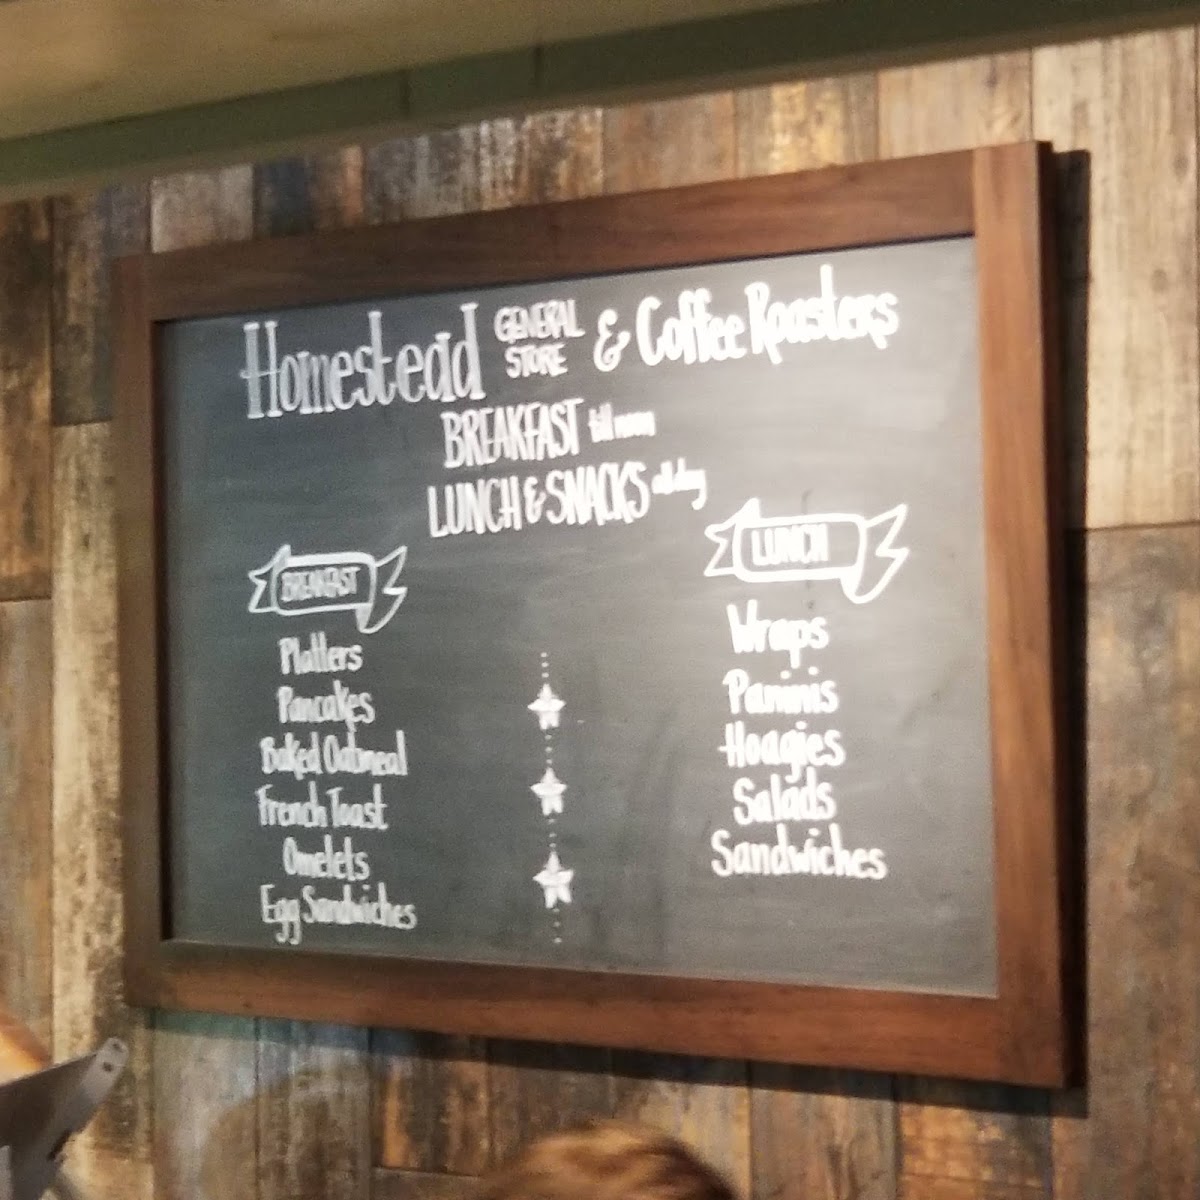 Homestead GENERAL STORE & Coffee Roasters
BREAKFAST till noon
LUNCH & SNACKS all day
BREAKFAST
Platters
Pancakes
Baked Oatmeal
French Toast
Omelets
Egg Sandwiches
LUNCH
Wraps
Paninis
Hoagies
Salads
Sandwiches